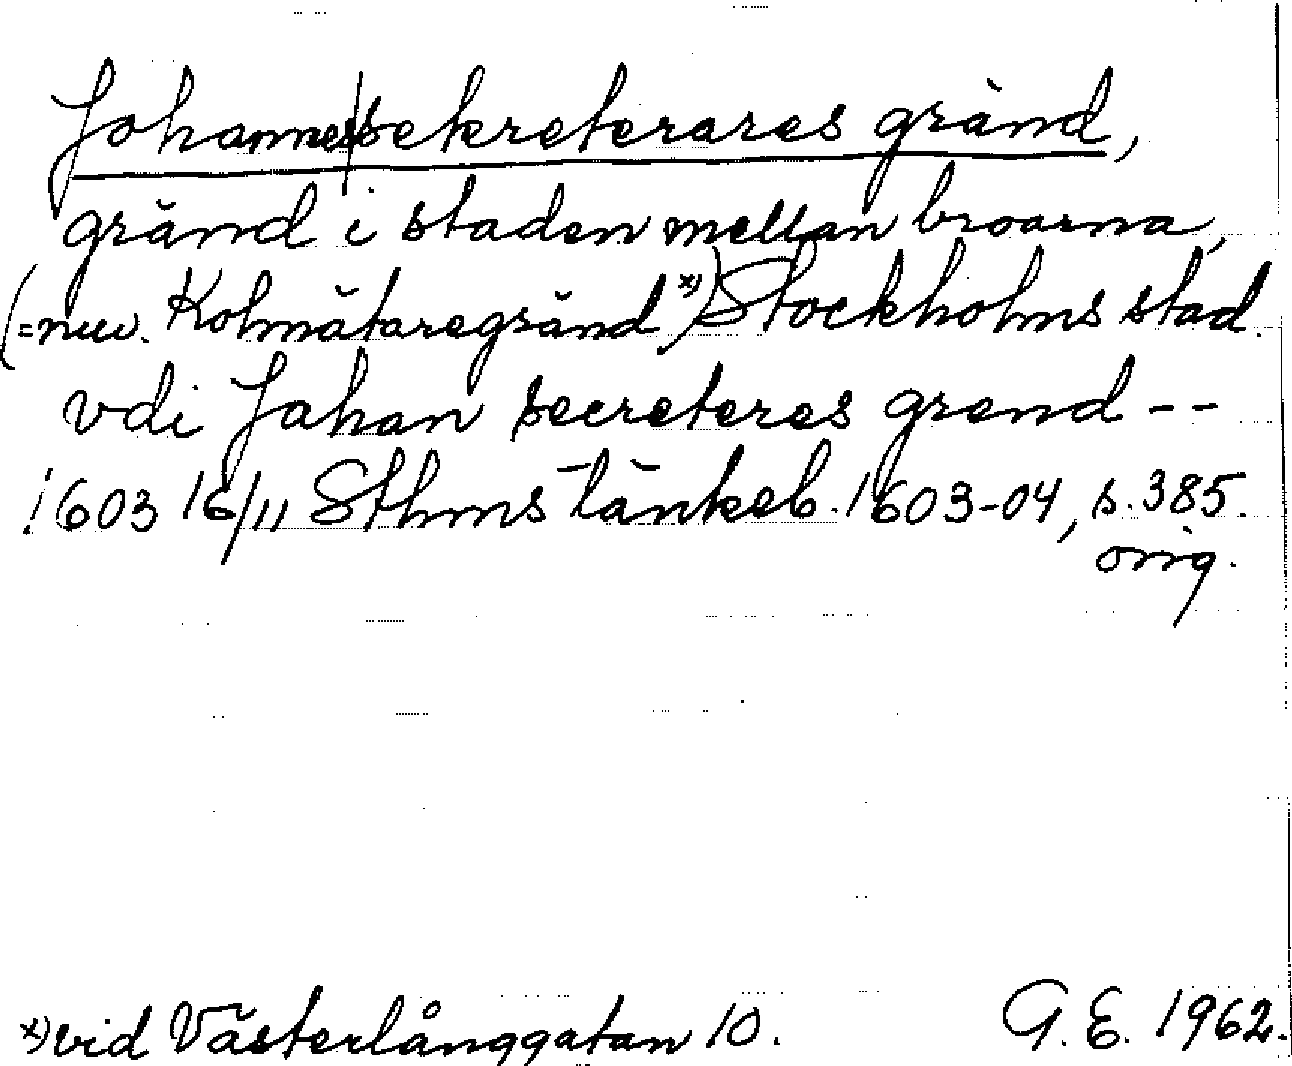 Johannes|sekreterares gränd,
gränd i staden mellan broarna,
(=nuv. Kolmätaregränd x)) Stockholms stad.
vdi Johan secreteres grend --
1603 16/11 Sthms tänkeb. 1603-04, s. 385.
orig.
x) vid Västerlånggatan 10. G. E. 1962.